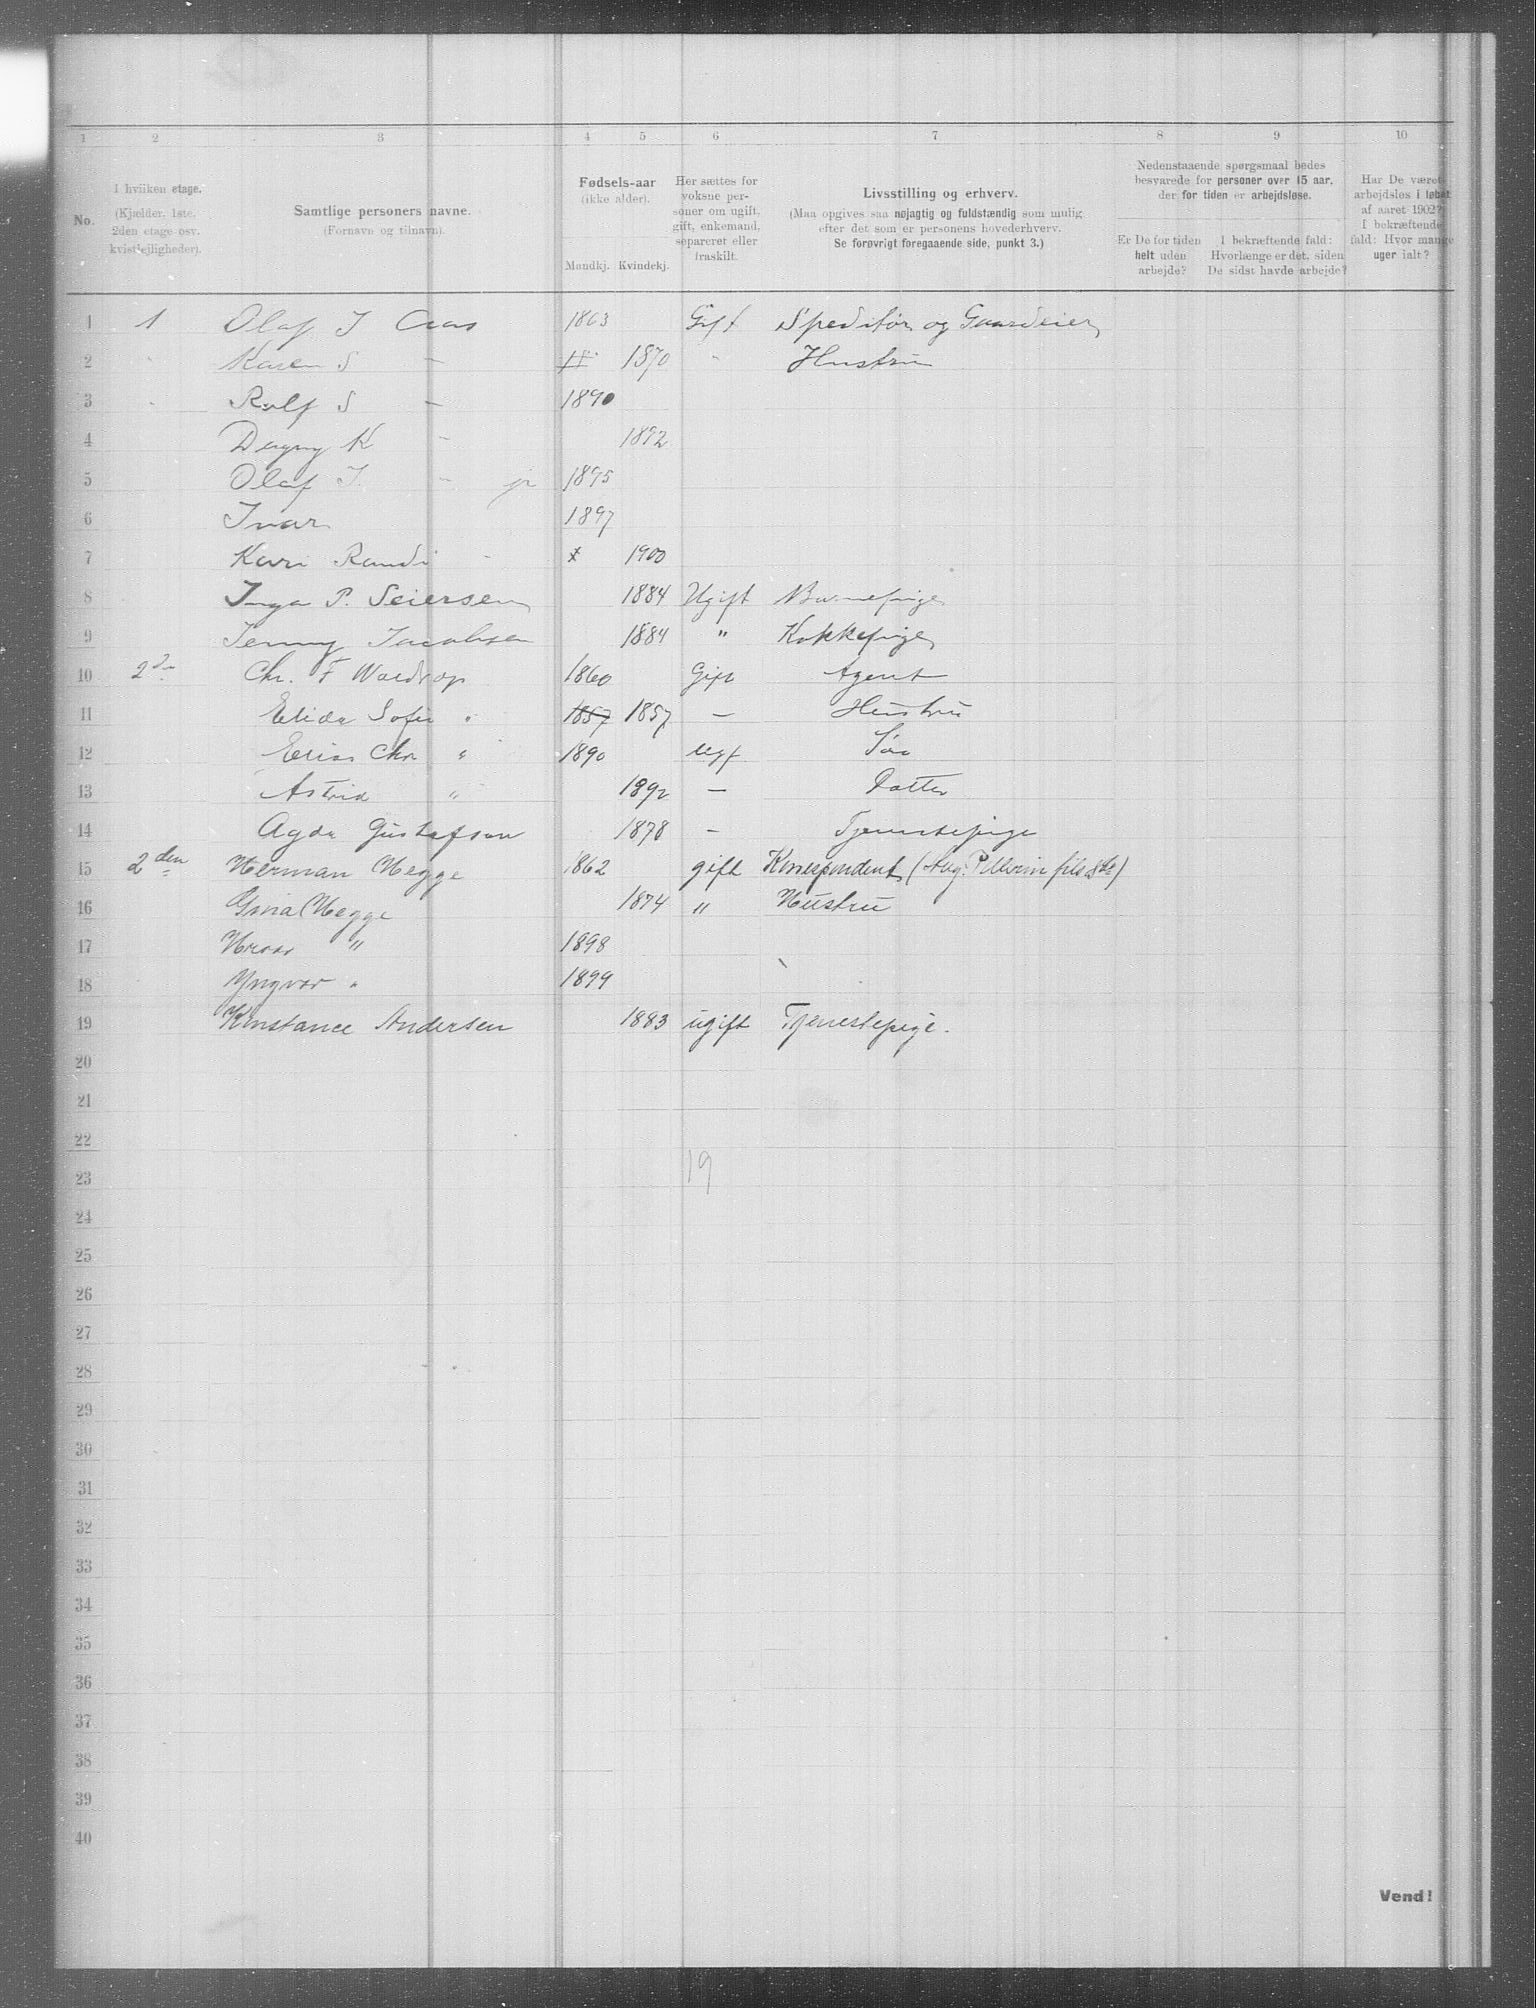 1 2 3 4 5 6 7 8 9 10
No.
I hvilken etage.
(Kjælder, 1ste, 2den etage osv. kvistlejligheder).
Samtlige personers navne.
(Fornavn og tilnavn).
Fødsels-aar
(ikke alder).
Mandkj. Kvindekj.
Her sættes for voksne personer om ugift, gift, enkemand, separeret eller fraskilt.
Livsstilling og erhverv.
(Maa opgives saa nøjagtig og fuldstændig som mulig efter det som er personens hovederhverv.
Se forøvrigt foregaaende side, punkt 3.)
Nedenstaaende spørgsmaal bedes besvarede for personer over 15 aar, der for tiden er arbejdsløse.
Er De for tiden helt uden arbejde?
I bekræftende fald: Hvorlænge er det, siden De sidst havde arbejde?
Har De været arbejdsløs i løbet af aaret 1902? I bekræftende fald: Hvor mange uger ialt?
1 1 Olaf J 1863 Gift Speditør og Gaardeier
2 " Karen S — 1870 " Hustru
3 " Rolf S — 1890
4 Dagny K — 1892
5 Olaf J. — jr 1895
6 Ivar 1897
7 Kari Randi — 1900
8 Inga P. Seiersen 1884 Ugift Barnepige
9 Jenny Jacobsen 1884 " Kokkepige
10 2den Chr. F Wardrop 1860 Gift Agent
11 Elida Sofie " 1857 1857 — Hustru
12 Chr " 1890 ugf Søn
13 Astrid " 1892 — Datter
14 Agda Gustafson 1878 — Tjenestepige
15 2den Herman Hegge 1862 gift Korrespondent (Aug. Pellerin fils & Co)
16 Gina Hegge 1874 " Hustru
17 Hroar " 1898
18 Yngvar " 1899
19 Konstance Andersen 1883 ugift Tjenestepige.
20
21
22
23 19
24
25
26
27
28
29
30
31
32
33
34
35
36
37
38
39
40
Vend!